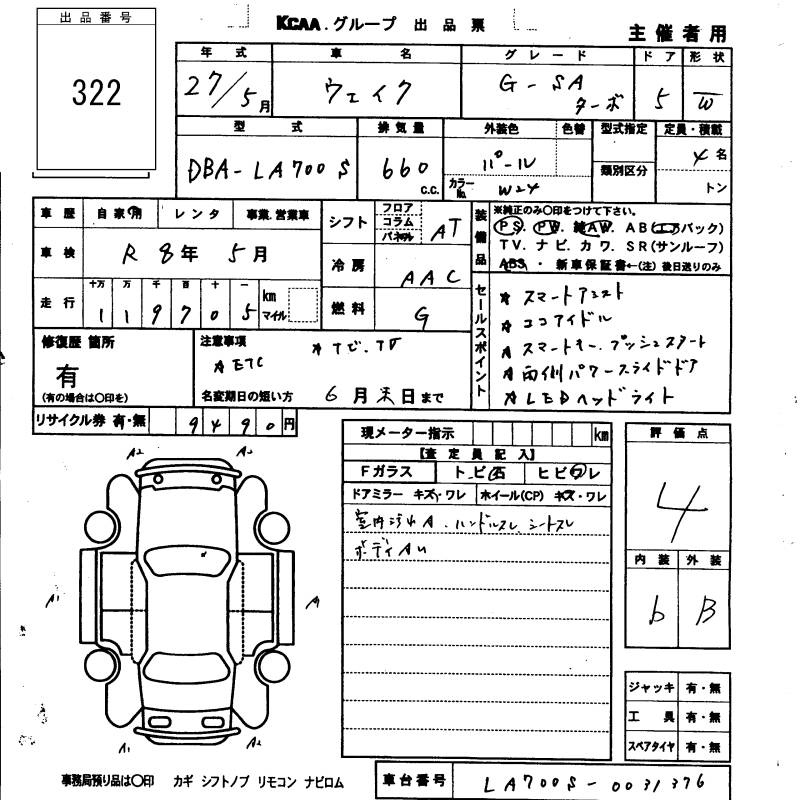 出品番号
322
KCAA.グループ 出品票
主催者用
年式 車名 グレード ドア 形状
27/5月 ウェイク G-SA ターボ 5 W
型式 排気量 外装色 色替 型式指定 定員・積載
DBA-LA700S 660 c.c. パール カラーNo. W24 類別区分 4名 トン
車歴 自家用 レンタ 事業.営業車
シフト フロア コラム パネル AT
装備品 ※純正のみ〇印をつけて下さい。
PS. PW. 純AW. AB(エアバック)
TV. ナビ. カワ. SR(サンルーフ)
ABS ・ 新車保証書←(注)後日送りのみ
車検 R8年 5月
冷房 AAC
走行 十万 万 千 百 十 一
1 1 9 7 0 5 km マイル
燃料 G
セールスポイント
★スマートアシスト
★エコアイドル
★スマートキー.プッシュスタート
★両側パワースライドドア
★LEDヘッドライト
修復歴 箇所
有
(有の場合は〇印を)
注意事項 ★ナビ.TV
★ETC
名変期日の短い方 6月末日まで
リサイクル券 有・無 9490円
現メーター指示 km
【査定員記入】
Fガラス トビ石 ヒビワレ
ドアミラー キズ・ワレ ホイール(CP) キズ・ワレ
室内汚れA.ハンドルスレ.シートスレ
ボディAU
評価点
4
内装 外装
b B
A2 A2
A1 A1
A1 A2
ジャッキ 有・無
工具 有・無
スペアタイヤ 有・無
事務局預り品は〇印 カギ シフトノブ リモコン ナビロム
車台番号 LA700S-0031376